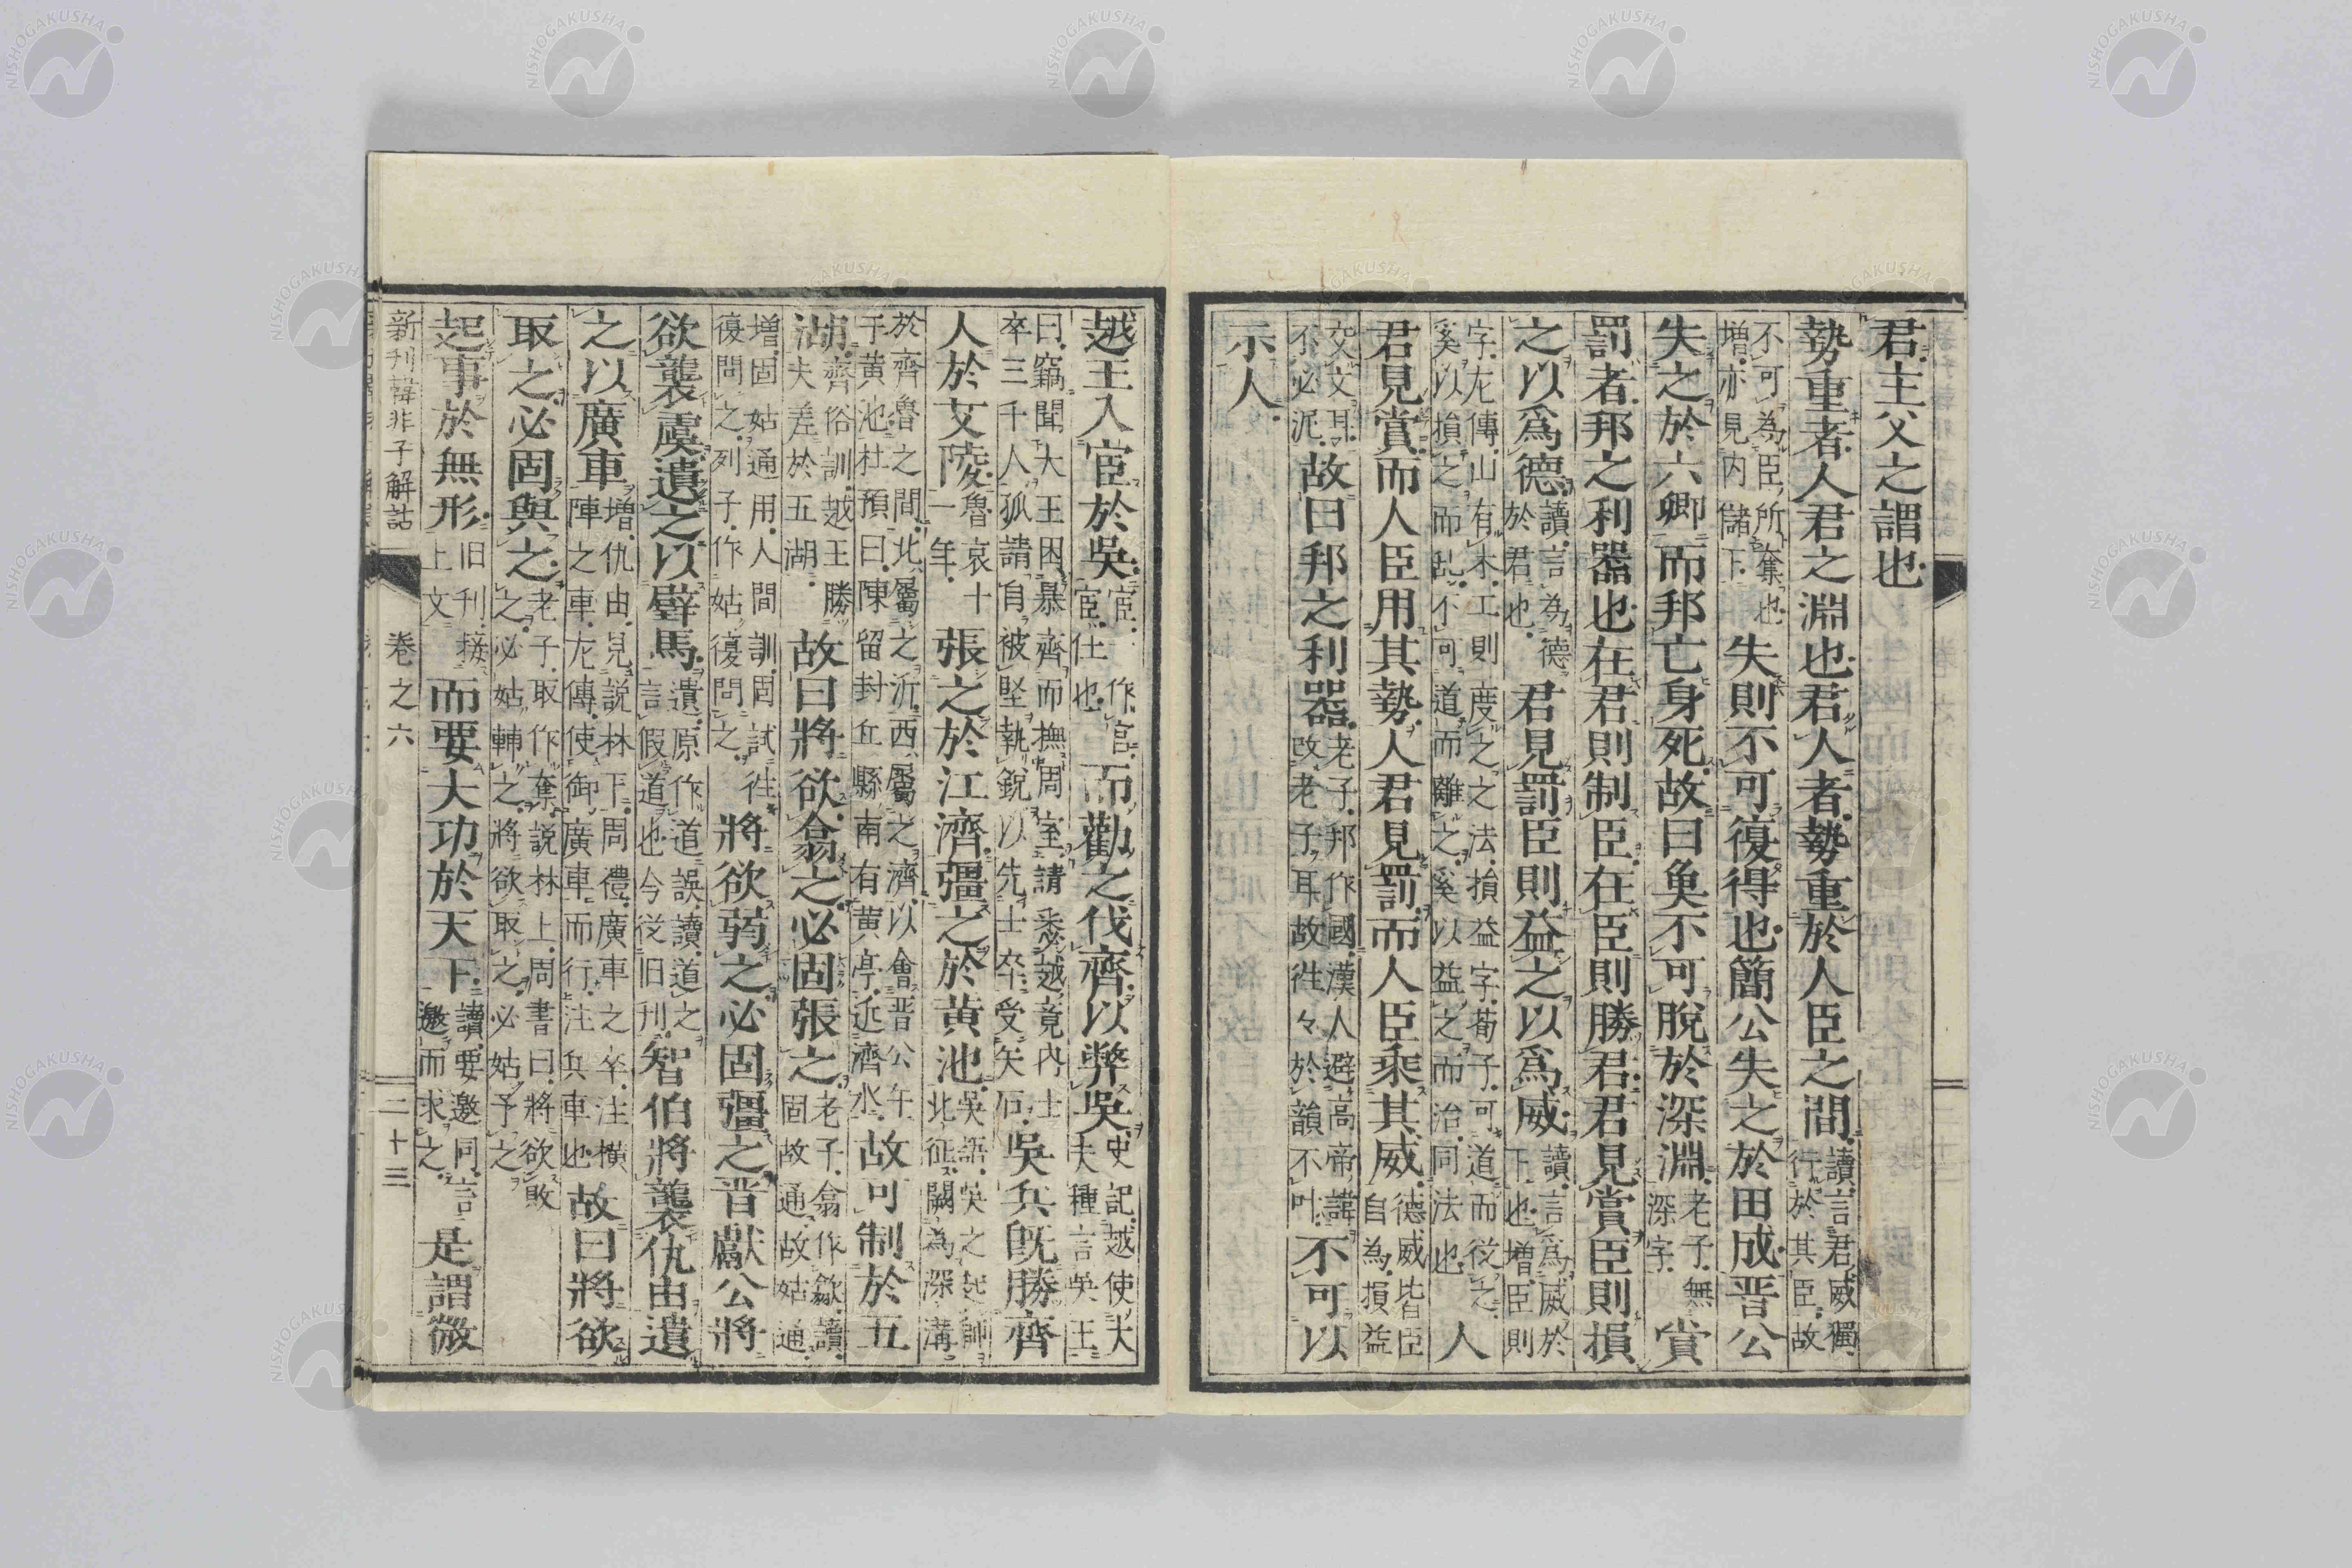 君主父之謂也
勢重者人君之淵也君人者勢重於人臣之間讀言君威獨行於其臣故
不可為臣所奪也増亦見内儲下失則不可復得也簡公失之於田成晋公
失之於六卿而邦亡身死故曰魚不可脫於深淵老子無深字賞
罰者邦之利器也在君則制臣在臣則勝君君見賞臣則損
之以爲德讀言為德於君也君見罰臣則益之以爲威讀言為威於下也増臣則
字左傳山有木工則度之之法損益字荀子可道而從之奚以損之而乱不可道而離之奚以益之而治同法也人
君見賞而人臣用其勢人君見罰而人臣乘其威德威皆臣自為損益
交文耳不必泥故曰邦之利器老子邦作國漢人避高帝諱改老子耳故往々於韻不叶不可以
示人
越王入宦於吳宦作官宦仕也而勸之伐齊以弊吳史記越使大夫種言吳王
曰竊聞大王困暴齊而撫周室請悉越竟内士卒三千人孤請自被堅執銳以先士卒受矢石吳兵既勝齊
人於艾陵魯哀十一年張之於江濟彊之於黄池吳語吳之起師北征闕為深溝
於齊魯之間北屬之沂西屬之濟以會晋公午于黄池杜預曰陳留封丘縣南有黄亭近濟水故可制於五
湖齊俗訓越王勝夫差於五湖故曰將欲翕之必固張之老子翕作歙讀固故通故姑通
増固姑通用人間訓固試往復問之列子作姑復問之將欲弱之必固彊之晋獻公將
欲襲虞遺之以璧馬遺原作道誤讀道之言假道也今從旧刊智伯將襲仇由遺
之以廣車増仇由見説林下周禮廣車之卒注横陣之車左傳使御廣車而行注兵車也故曰將欲
取之必固與之老子取作奪説林上周書曰將欲敗之必姑輔之將欲取之必姑予之
起事於無形旧刊接上文而要大功於天下讀要邀同言邀而求之是謂微
新刊韓非子解詁
卷之六
二十三